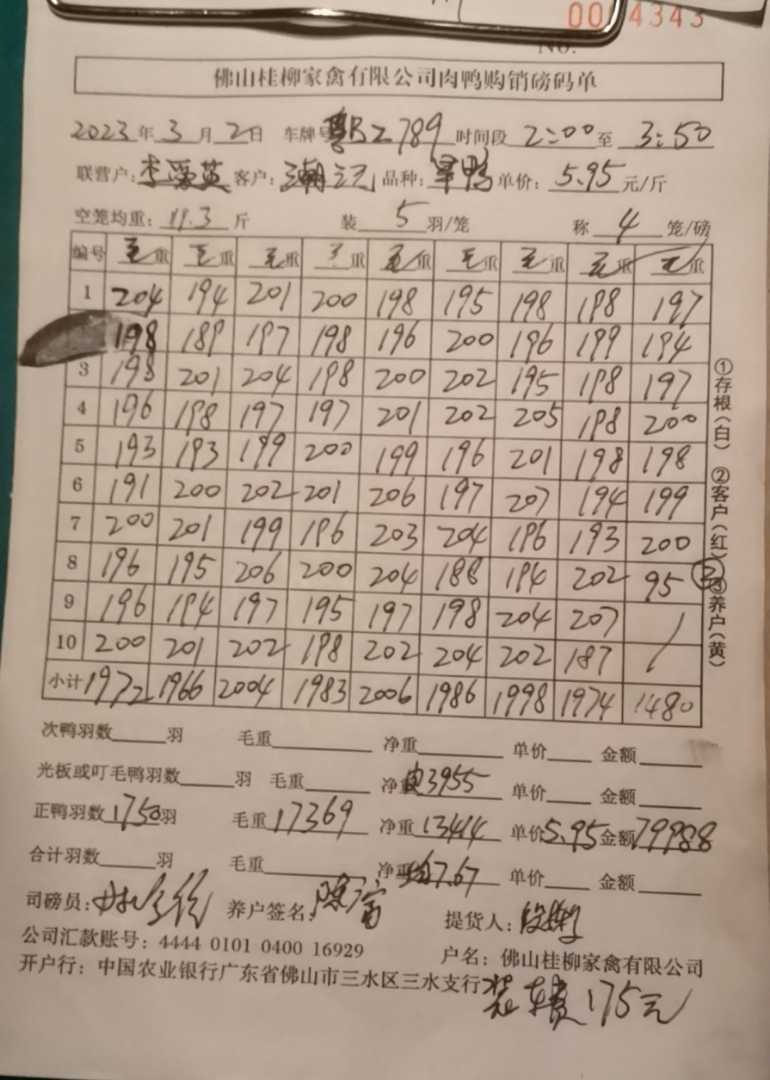 004343
NO.
佛山桂柳家禽有限公司肉鸭购销磅码单
2023年3月2日 车牌号 789 时间段 2:00 至 3:50
联营户: 李 英 客户: 潮 品种: 鸭 单价: 5.95 元/斤
空笼均重: 11.3 斤 装 5 羽/笼 称 4 笼/磅
编号 毛重 毛重 毛重 毛重 毛重 毛重 毛重 毛重 毛重
1 204 194 201 200 198 195 198 198 197
198 189 197 198 196 200 196 199 194
3 198 201 204 198 200 202 195 198 197
4 196 198 197 197 201 202 205 198 200
5 193 193 199 200 199 196 201 198 198
6 191 200 202 201 206 197 207 194 199
7 200 201 199 196 203 204 196 193 200
8 196 195 206 200 204 188 194 202 95 ②
9 196 194 197 195 197 198 204 207 /
10 200 201 202 198 202 204 202 187 /
小计 1972 1966 2004 1983 2006 1986 1998 1974 1480
①存根(白) ②客户(红) ③养户(黄)
次鸭羽数 羽 毛重 净重 单价 金额
光板或叮毛鸭羽数 羽 毛重 净重 3955 单价 金额
正鸭羽数 1750 羽 毛重 17369 净重 13414 单价 5.95 金额 79988
合计羽数 羽 毛重 净重 均7.67 单价 金额
司磅员: 养户签名: 陈 富 提货人:
公司汇款账号: 4444 0101 0400 16929 户名: 佛山桂柳家禽有限公司
开户行: 中国农业银行广东省佛山市三水区三水支行
装车费175元